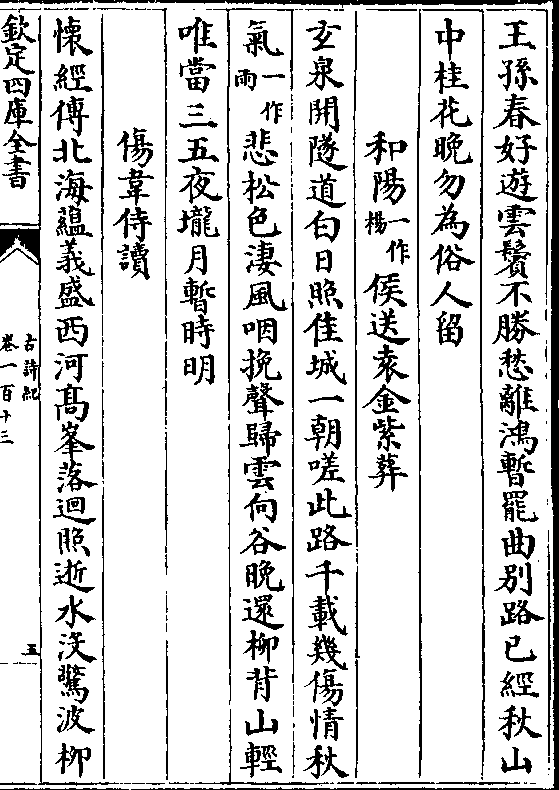 王孫春好遊雲鬢不勝愁離鴻暫罷曲别路已經秋山
中桂花晚勿為俗人留
和陽一作楊侯送袁金紫葬
玄泉開隧道白日照佳城一朝嗟此路千載幾傷情秋
氣一作雨悲松色淒風咽挽聲歸雲向谷晚還柳背山輕
唯當三五夜壠月暫時明
傷韋侍讀
懷經傳北海蘊義盛西河髙峯落迴照逝水没驚波柳
欽定四庫全書
古詩紀
卷一百十三
五